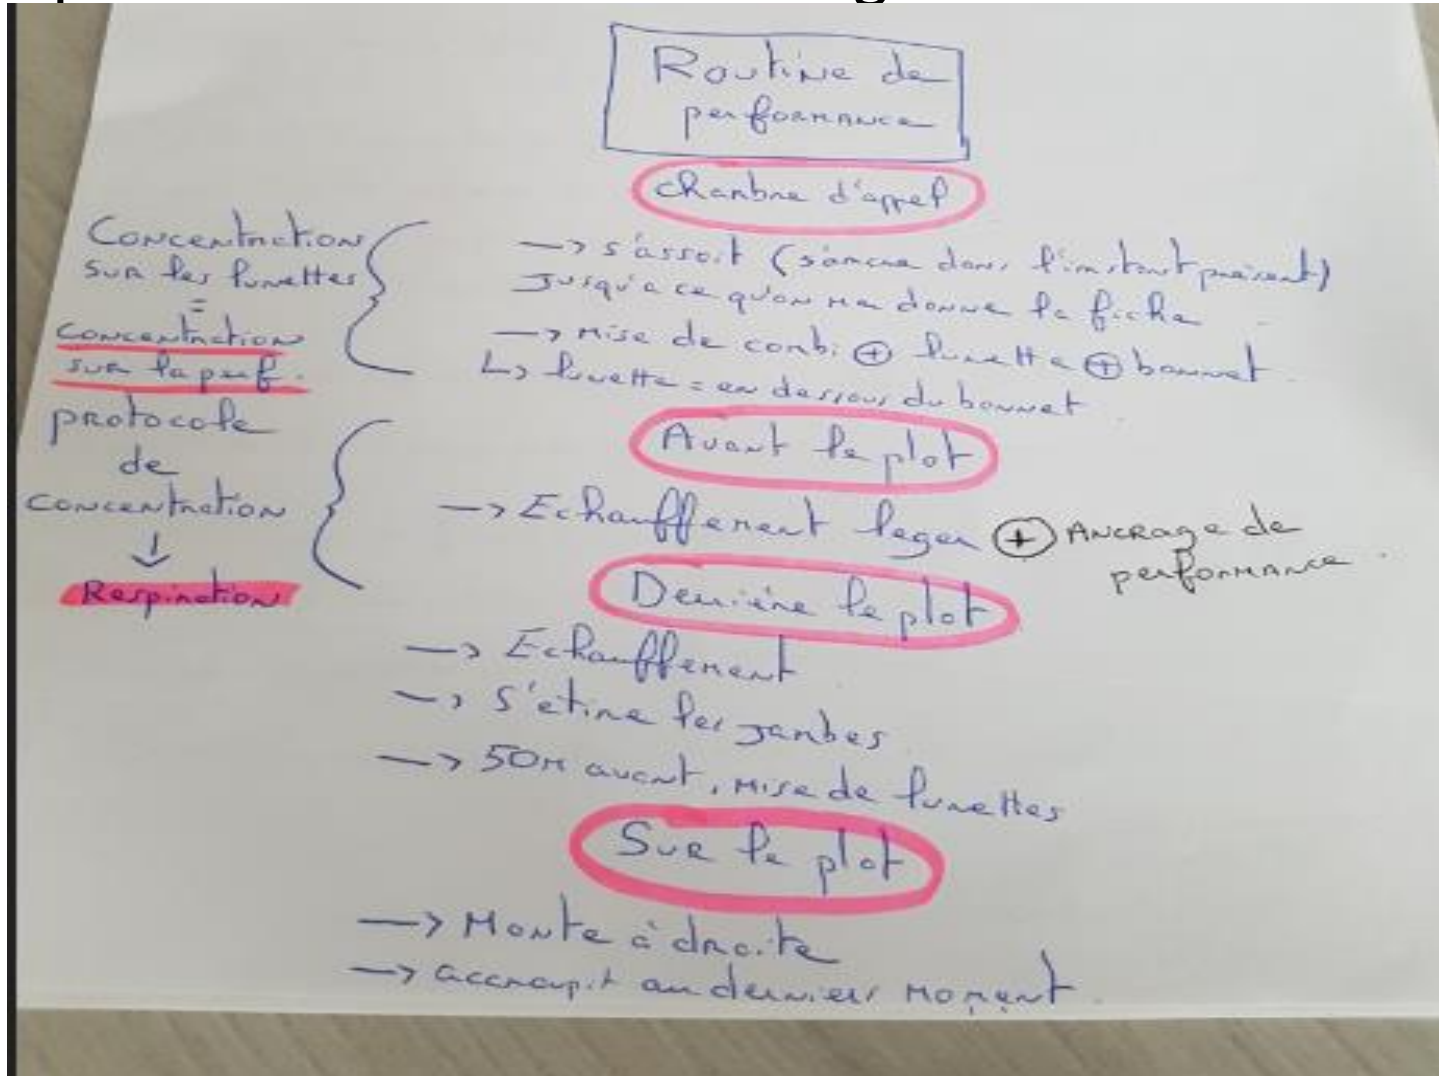 Routine de
performance
chambre d'appel
Concentration
sur les lunettes
=
concentration
sur la perf.
→ s'assoit (s'ancre dans l'instant présent)
Jusqu'a ce qu'on me donne la fiche
→ mise de combi ⊕ lunette ⊕ bonnet.
↳ lunette = en dessous du bonnet.
protocole
de
concentration
↓
Respiration
Avant le plot
→ Echauffement leger ⊕ Ancrage de
performance.
Derrière le plot
→ Echauffement
→ s'etire les jambes
→ 50m avant, mise de lunettes
Sur le plot
→ Monte à droite
→ accroupit au derniers moment.